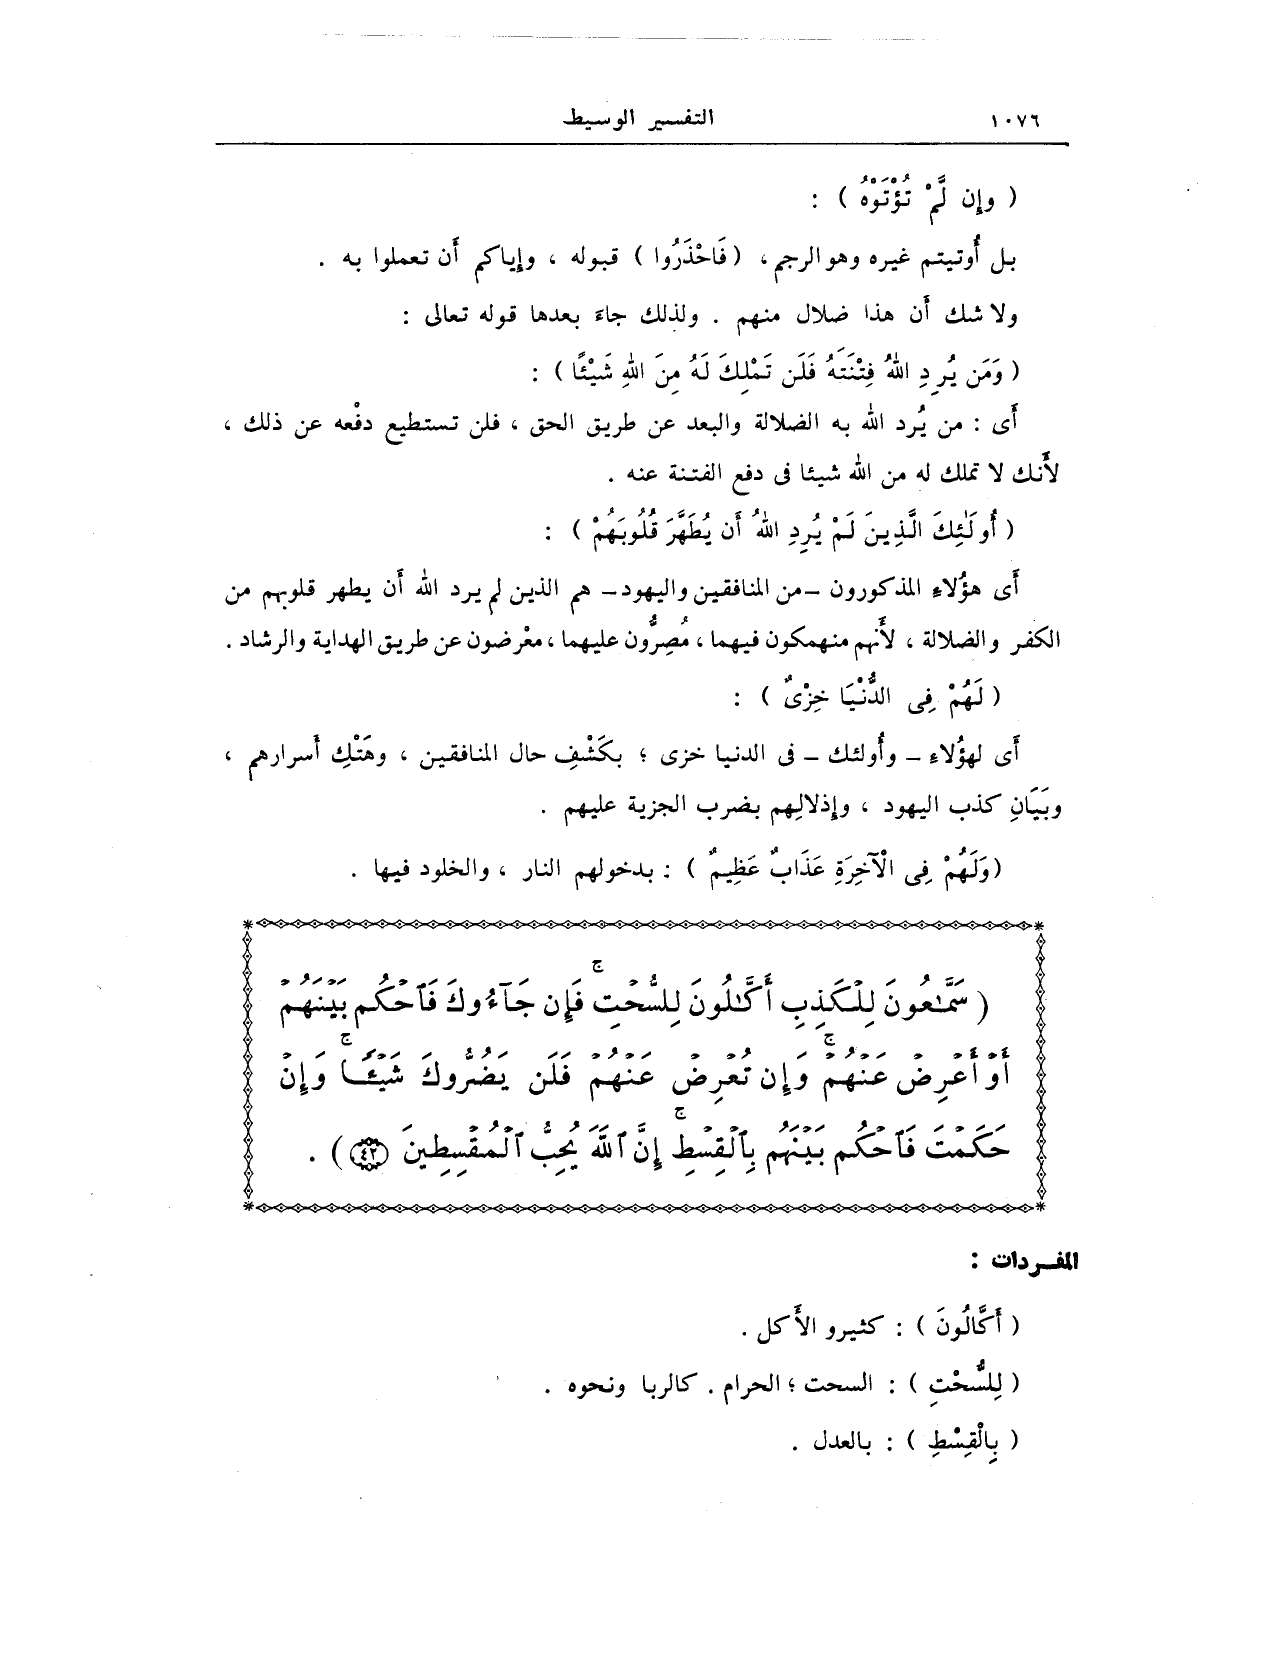 ١٠٧٦ التفسير الوسيط
( وإِن لَّمْ تُؤْتَوْهُ ) :
بل أُوتيتم غيره وهو الرجم، ( فَاحْذَرُوا ) قبوله ، وإياكم أَن تعملوا به .
ولا شك أَن هذا ضلال منهم . ولذلك جاءَ بعدها قوله تعالى :
( وَمَن يُرِدِ اللهُ فِتْنَتَهُ فَلَن تَمْلِكَ لَهُ مِنَ اللهِ شَيْئًا ) :
أَى : من يُرد الله به الضلالة والبعد عن طريق الحق ، فلن تستطيع دفْعه عن ذلك ،
لأَنك لا تملك له من الله شيئا فى دفع الفتنة عنه .
( أُولَٰئِكَ الَّذِينَ لَمْ يُرِدِ اللهُ أَن يُطَهَّرَ قُلُوبَهُمْ ) :
أَى هؤُلاءِ المذكورون -من المنافقين واليهود- هم الذين لم يرد الله أَن يطهر قلوبهم من
الكفر والضلالة ، لأَنهم منهمكون فيهما ، مُصِرُّون عليهما ، معْرضون عن طريق الهداية والرشاد .
( لَهُمْ فِى الدُّنْيَا خِزْىٌ ) :
أَى لهؤُلاءِ - وأُولئك - فى الدنيا خزى ؛ بكَشْفِ حال المنافقين ، وهَتْكِ أَسرارهم ،
وبَيَانِ كذب اليهود ، وإذلالِهم بضرب الجزية عليهم .
(وَلَهُمْ فِى الْآخِرَةِ عَذَابٌ عَظِيمٌ ) : بدخولهم النار ، والخلود فيها .
( سَمَّٰعُونَ لِلْكَذِبِ أَكَّٰلُونَ لِلسُّحْتِ ۚ فَإِن جَآءُوكَ فَٱحْكُم بَيْنَهُمْ
أَوْ أَعْرِضْ عَنْهُمْ ۖ وَإِن تُعْرِضْ عَنْهُمْ فَلَن يَضُرُّوكَ شَيْـًٔا ۖ وَإِنْ
حَكَمْتَ فَٱحْكُم بَيْنَهُم بِٱلْقِسْطِ ۚ إِنَّ ٱللَّهَ يُحِبُّ ٱلْمُقْسِطِينَ ﴿٤٢﴾ ) .
المفـردات :
( أَكَّالُونَ ) : كثيرو الأَكل .
( لِلسُّحْتِ ) : السحت ؛ الحرام . كالربا ونحوه .
( بِالْقِسْطِ ) : بالعدل .